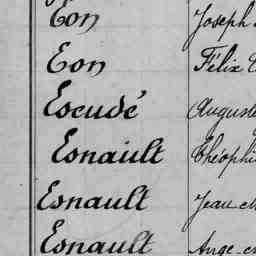 Eon Joseph
Eon Félix
Escudé Auguste
Esnault Théophi
Esnault Jean
Esnault Ange